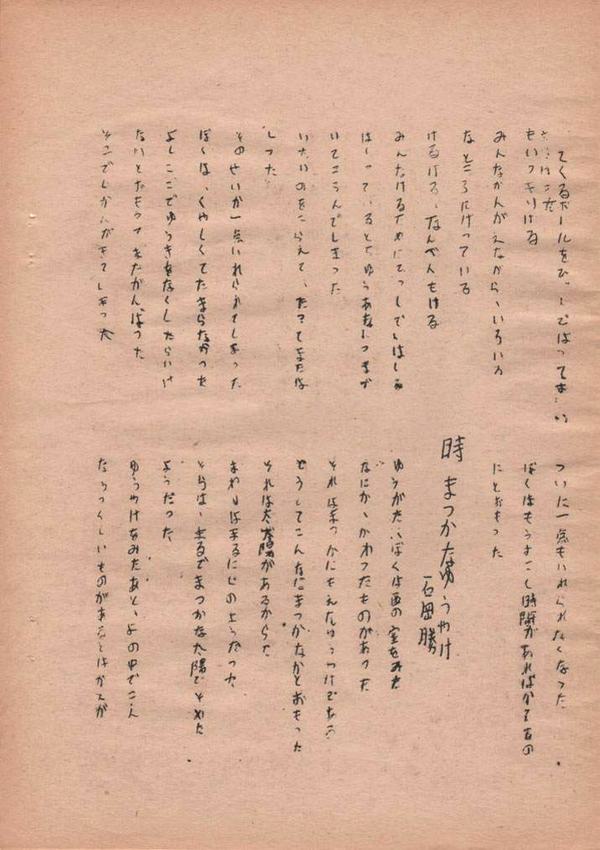 てくるボールをひっしではって
もいっそうける
みんなかんがえながら、いろいろ
なところにけっている
けるける、なんべんもける
みんなけるためにひっしではしる
はしっているとちゅうあ
いてころんでしまった
いたいのをこらえて、たってまたは
しった
そのせいか一点いれられてしまった
ぼくは、くやしくてたまらなかった
よしここでゆうきをなくしたらいけ
ないとおもってまたがんばった
そこでじかんがきてしまった
ついに一点もいれられなくなった
ぼくはもうすこし時間があればかてるの
にとおもった
時 まつかなゆうやけ
石田勝
ゆうがた、ぼくは西の空をみた
なにか、かわったものがあった
それはまっかにもえたゆうやけである
どうしてこんなにまっかなかとおもった
それは太陽があるからだ
まわりはまるでにじのようだった
そらは、まるでまっかな太陽でそめた
ようだった
ゆうやけをみたあと、よの中でこん
なうつくしいものがあるとはかんが